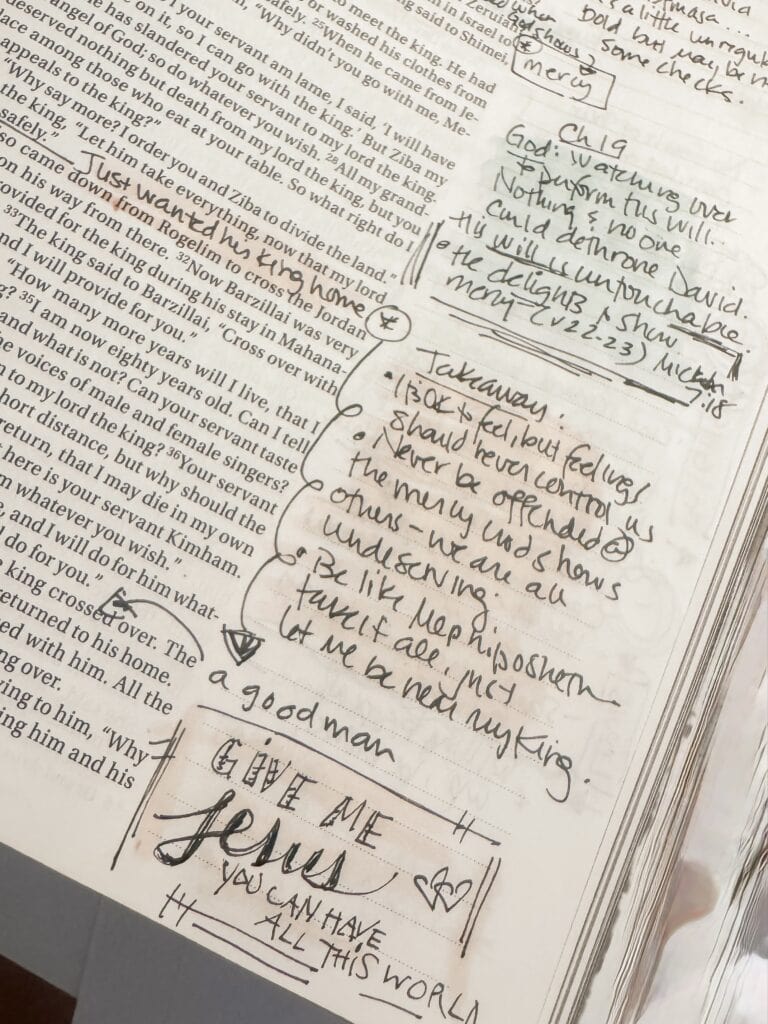 to meet the king. He had
or washed his clothes from
safely. 25When he came from Je-
"Why didn't you go with me, Me-
I your servant am lame, I said, 'I will have
e on it, so I can go with the king.' But Ziba my
has slandered your servant to my lord the king.
angel of God; so do whatever you wish. 28All my grand-
deserved nothing but death from my lord the king, but you
lace among those who eat at your table. So what right do I
appeals to the king?"
"Why say more? I order you and Ziba to divide the land."
the king, "Let him take everything, now that my lord
safely."
Just wanted his king home
so came down from Rogelim to cross the Jordan
on his way from there. 32Now Barzillai was very
ovided for the king during his stay in Mahana-
33The king said to Barzillai, "Cross over with
nd I will provide for you."
"How many more years will I live, that I
g? 35I am now eighty years old. Can I tell
and what is not? Can your servant taste
he voices of male and female singers?
n to my lord the king? 36Your servant
hort distance, but why should the
return, that I may die in my own
t here is your servant Kimham.
m whatever you wish."
e, and I will do for him what-
l do for you."
e king crossed over. The
returned to his home.
ed with him. All the
ng over.
ying to him, "Why
ing him and his
a little
bold but may be
some checks.
God shows
mercy
Ch 19
God: watching over
to perform His will.
Nothing & no one
could dethrone David.
His will is untouchable.
• He delights to show
mercy (v22-23) Micah
7:18
Takeaway:
• It is OK to feel, but feelings
should never control us
• Never be offended @
the mercy God shows
others - we are all
undeserving.
• Be like Mephiposheth-
take it all, just
let me be near my King.
a good man
GIVE ME
Jesus
YOU CAN HAVE
ALL THIS WORLD